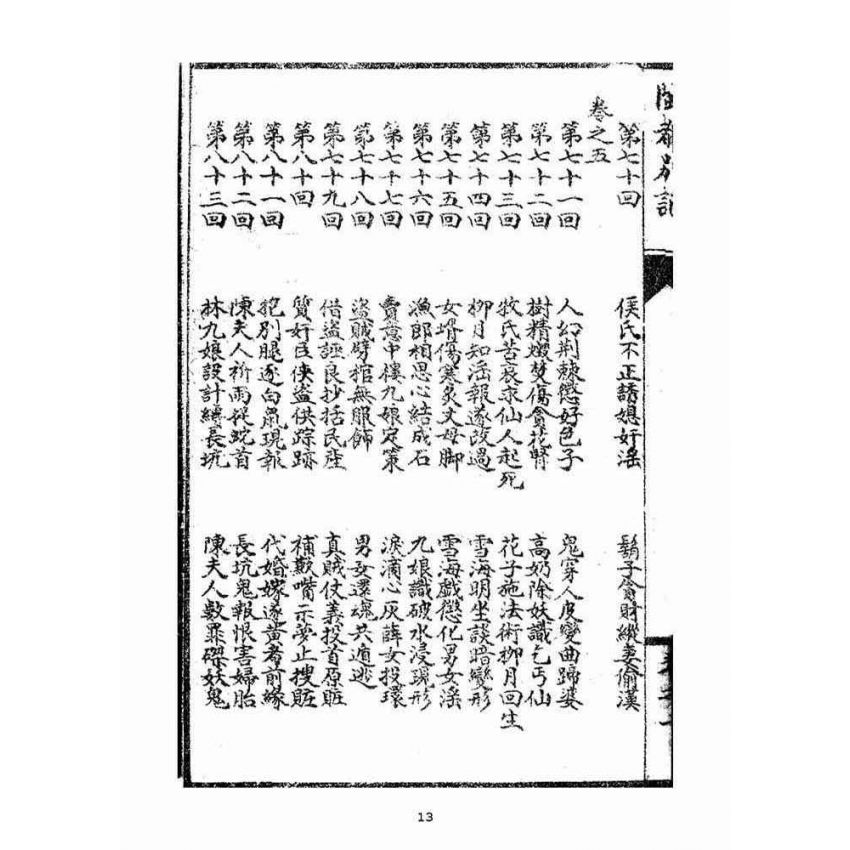 閩都別記
第七十回 侯氏不正誘媳奸淫 鬍子貪財縱妻偷漢
卷之五
第七十一回 人幻荊棘懲好色子 鬼穿人皮變曲蹄婆
第七十二回 樹精燬焚傷貪花腎 高奶除妖識乞丐仙
第七十三回 牧氏苦哀求仙人起死 花子施法術柳月回生
第七十四回 柳月知淫報遂改過 雪海明坐談暗變形
第七十五回 女婿傷寒炙丈母腳 雪海戲懲化男女淫
第七十六回 漁郎相思心結成石 九娘識破水浸現形
第七十七回 賣意中樓九娘定策 淚滴心灰薛女投環
第七十八回 盜賊劈棺無服飾 男女還魂共遁逃
第七十九回 借盜誣良抄括民產 真賊仗義投首原贓
第八十回 質奸臣俠盜供踪跡 補歎嘴示夢止搜贓
第八十一回 抱別腿逐白鼠現報 代婚嫁遂黃耇前緣
第八十二回 陳夫人祈雨從蛇首 長坑鬼報恨害婦胎
第八十三回 林九娘設計縛長坑 陳夫人數罪磔妖鬼
13